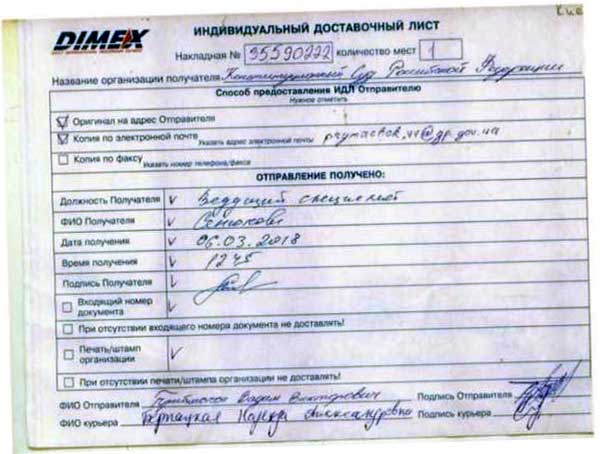 Кие
DIMEX
ИНДИВИДУАЛЬНЫЙ ДОСТАВОЧНЫЙ ЛИСТ
Накладная № 35590222 количество мест 1
Название организации получателя Конституционный Суд Российской Федерации
Способ предоставления ИДЛ Отправителю
Нужное отметить
Оригинал на адрес Отправителя
Копия по электронной почте Указать адрес электронной почты @gp.gov.ua
Копия по факсу Указать номер телефона/факса
ОТПРАВЛЕНИЕ ПОЛУЧЕНО:
Должность Получателя Ведущий специалист
ФИО Получателя
Дата получения 06.03.2018
Время получения 1245
Подпись Получателя
Входящий номер
документа
При отсутствии входящего номера документа не доставлять!
Печать/штамп
организации
При отсутствии печати/штампа организации не доставлять!
ФИО Отправителя Вадим Викторович Подпись Отправителя
ФИО курьера Александровна Подпись курьера